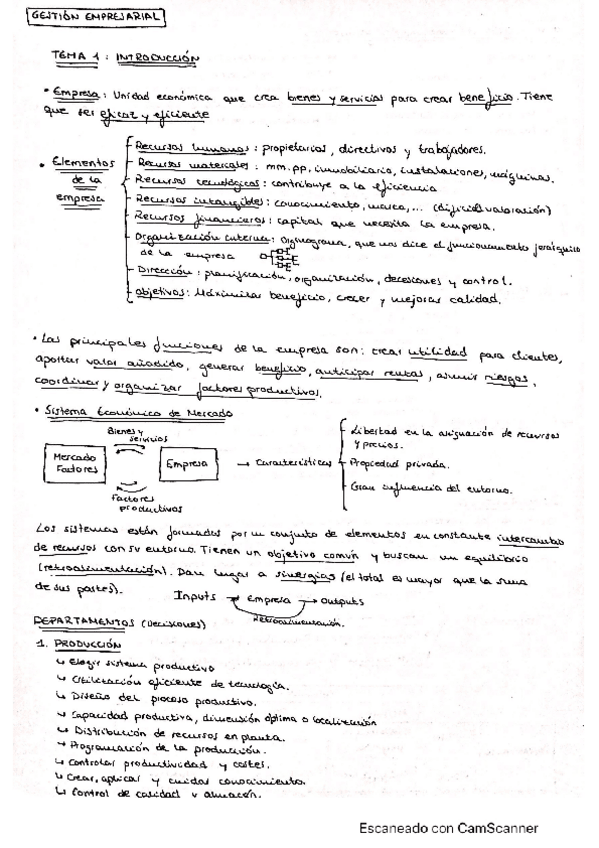 GESTIÓN EMPRESARIAL
TEMA 1: INTRODUCCIÓN
• Empresa: Unidad económica que crea bienes y servicios para crear beneficio. Tiene
que ser eficaz y eficiente
• Elementos de la empresa
Recursos humanos: propietarios, directivos y trabajadores.
Recursos materiales: mm.pp, inmobiliario, instalaciones, máquinas.
Recursos tecnológicos: contribuye a la eficiencia
Recursos intangibles: conocimiento, marca,... (difícil valoración)
Recursos financieros: capital que necesita la empresa.
Organización interna: Organigrama, que nos dice el funcionamiento jerárquico
de la empresa
Dirección: planificación, organización, decisiones y control.
Objetivos: Maximizar beneficio, crecer y mejorar calidad.
• Las principales funciones de la empresa son: crear utilidad para clientes,
aportar valor añadido, generar beneficio, anticipar rentas, asumir riesgos,
coordinar y organizar factores productivos.
• Sistema Económico de Mercado
Bienes y
servicios
Mercado
Factores
Empresa
Factores
productivos
→ Características
Libertad en la asignación de recursos
y precios.
Propiedad privada.
Gran influencia del entorno.
Los sistemas están formados por un conjunto de elementos en constante intercambio
de recursos con su entorno. Tienen un objetivo común y buscan un equilibrio
(retroalimentación). Dan lugar a sinergias (el total es mayor que la suma
de sus partes).
Inputs → empresa → outputs
Retroalimentación.
DEPARTAMENTOS (Decisiones)
1. PRODUCCIÓN
↳ Elegir sistema productivo
↳ Utilización eficiente de tecnología.
↳ Diseño del proceso productivo.
↳ Capacidad productiva, dimensión óptima o localización
↳ Distribución de recursos en planta.
↳ Programación de la producción.
↳ Controlar productividad y costes.
↳ Crear, aplicar y cuidar conocimiento.
↳ Control de calidad y almacén.
Escaneado con CamScanner